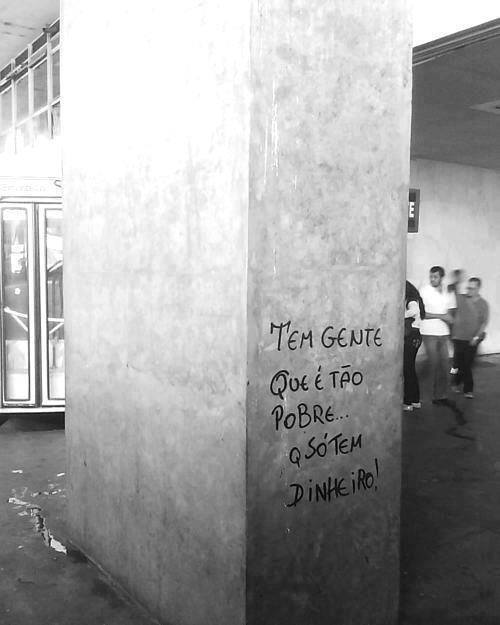 E
TEM GENTE
QUE É TÃO
POBRE...
Q SÓ TEM
DINHEIRO!